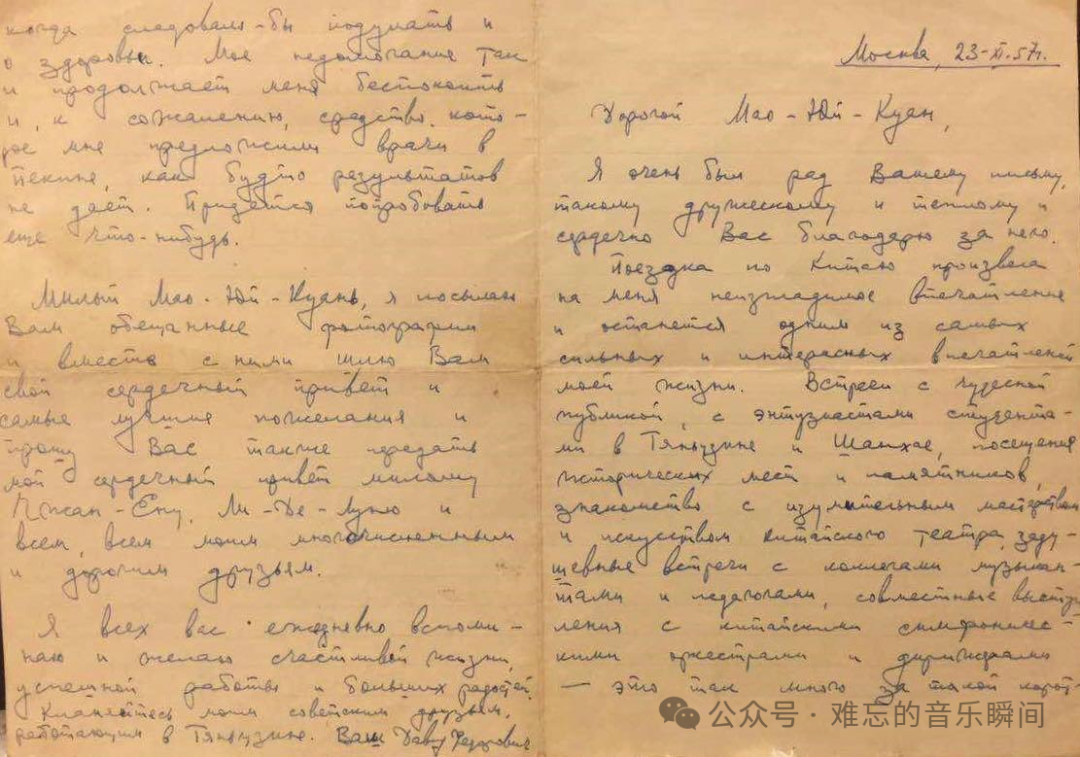 Москва, 23-XI.57г.
Дорогой Мао-Юй-Куан,
Я очень был рад Вашему письму,
такому дружескому и теплому и
сердечно Вас благодарю за него.
Поездка по Китаю произвела
на меня неизгладимое впечатление
и останется одним из самых
сильных и интересных впечатлений
моей жизни. Встречи с чудесной
публикой, с энтузиастами студента-
ми в Тяньцзине и Шанхае, посещения
исторических мест и памятников,
знакомство с изумительным мастерством
и искусством китайского театра, заду-
шевные встречи с коллегами музыкан-
тами и педагогами, совместные выступ-
ления с китайскими симфоничес-
кими оркестрами и дирижерами
— это так много за такой корот-
когда следовало-бы подумать и
о здоровьи. Мое недомогание так
и продолжает меня беспокоить
и, к сожалению, средство, кото-
рое мне предложили врачи в
Пекине, как будто результатов
не дает. Придется попробовать
еще что-нибудь.
Милый Мао-Юй-Куань, я посылаю
Вам обещанные фотографии
и вместе с ними шлю Вам
свой сердечный привет и
самые лучшие пожелания и
прошу Вас также передать
мой сердечный привет милому
Ли-Де-Луню и
всем, всем моим многочисленным
и дорогим друзьям.
Я всех вас ежедневно вспоми-
наю и желаю счастливой жизни,
успешной работы и больших радостей.
Кланяйтесь моим советским друзьям,
работающим в Тяньцзине. Ваш Давид Федорович
公众号 · 难忘的音乐瞬间